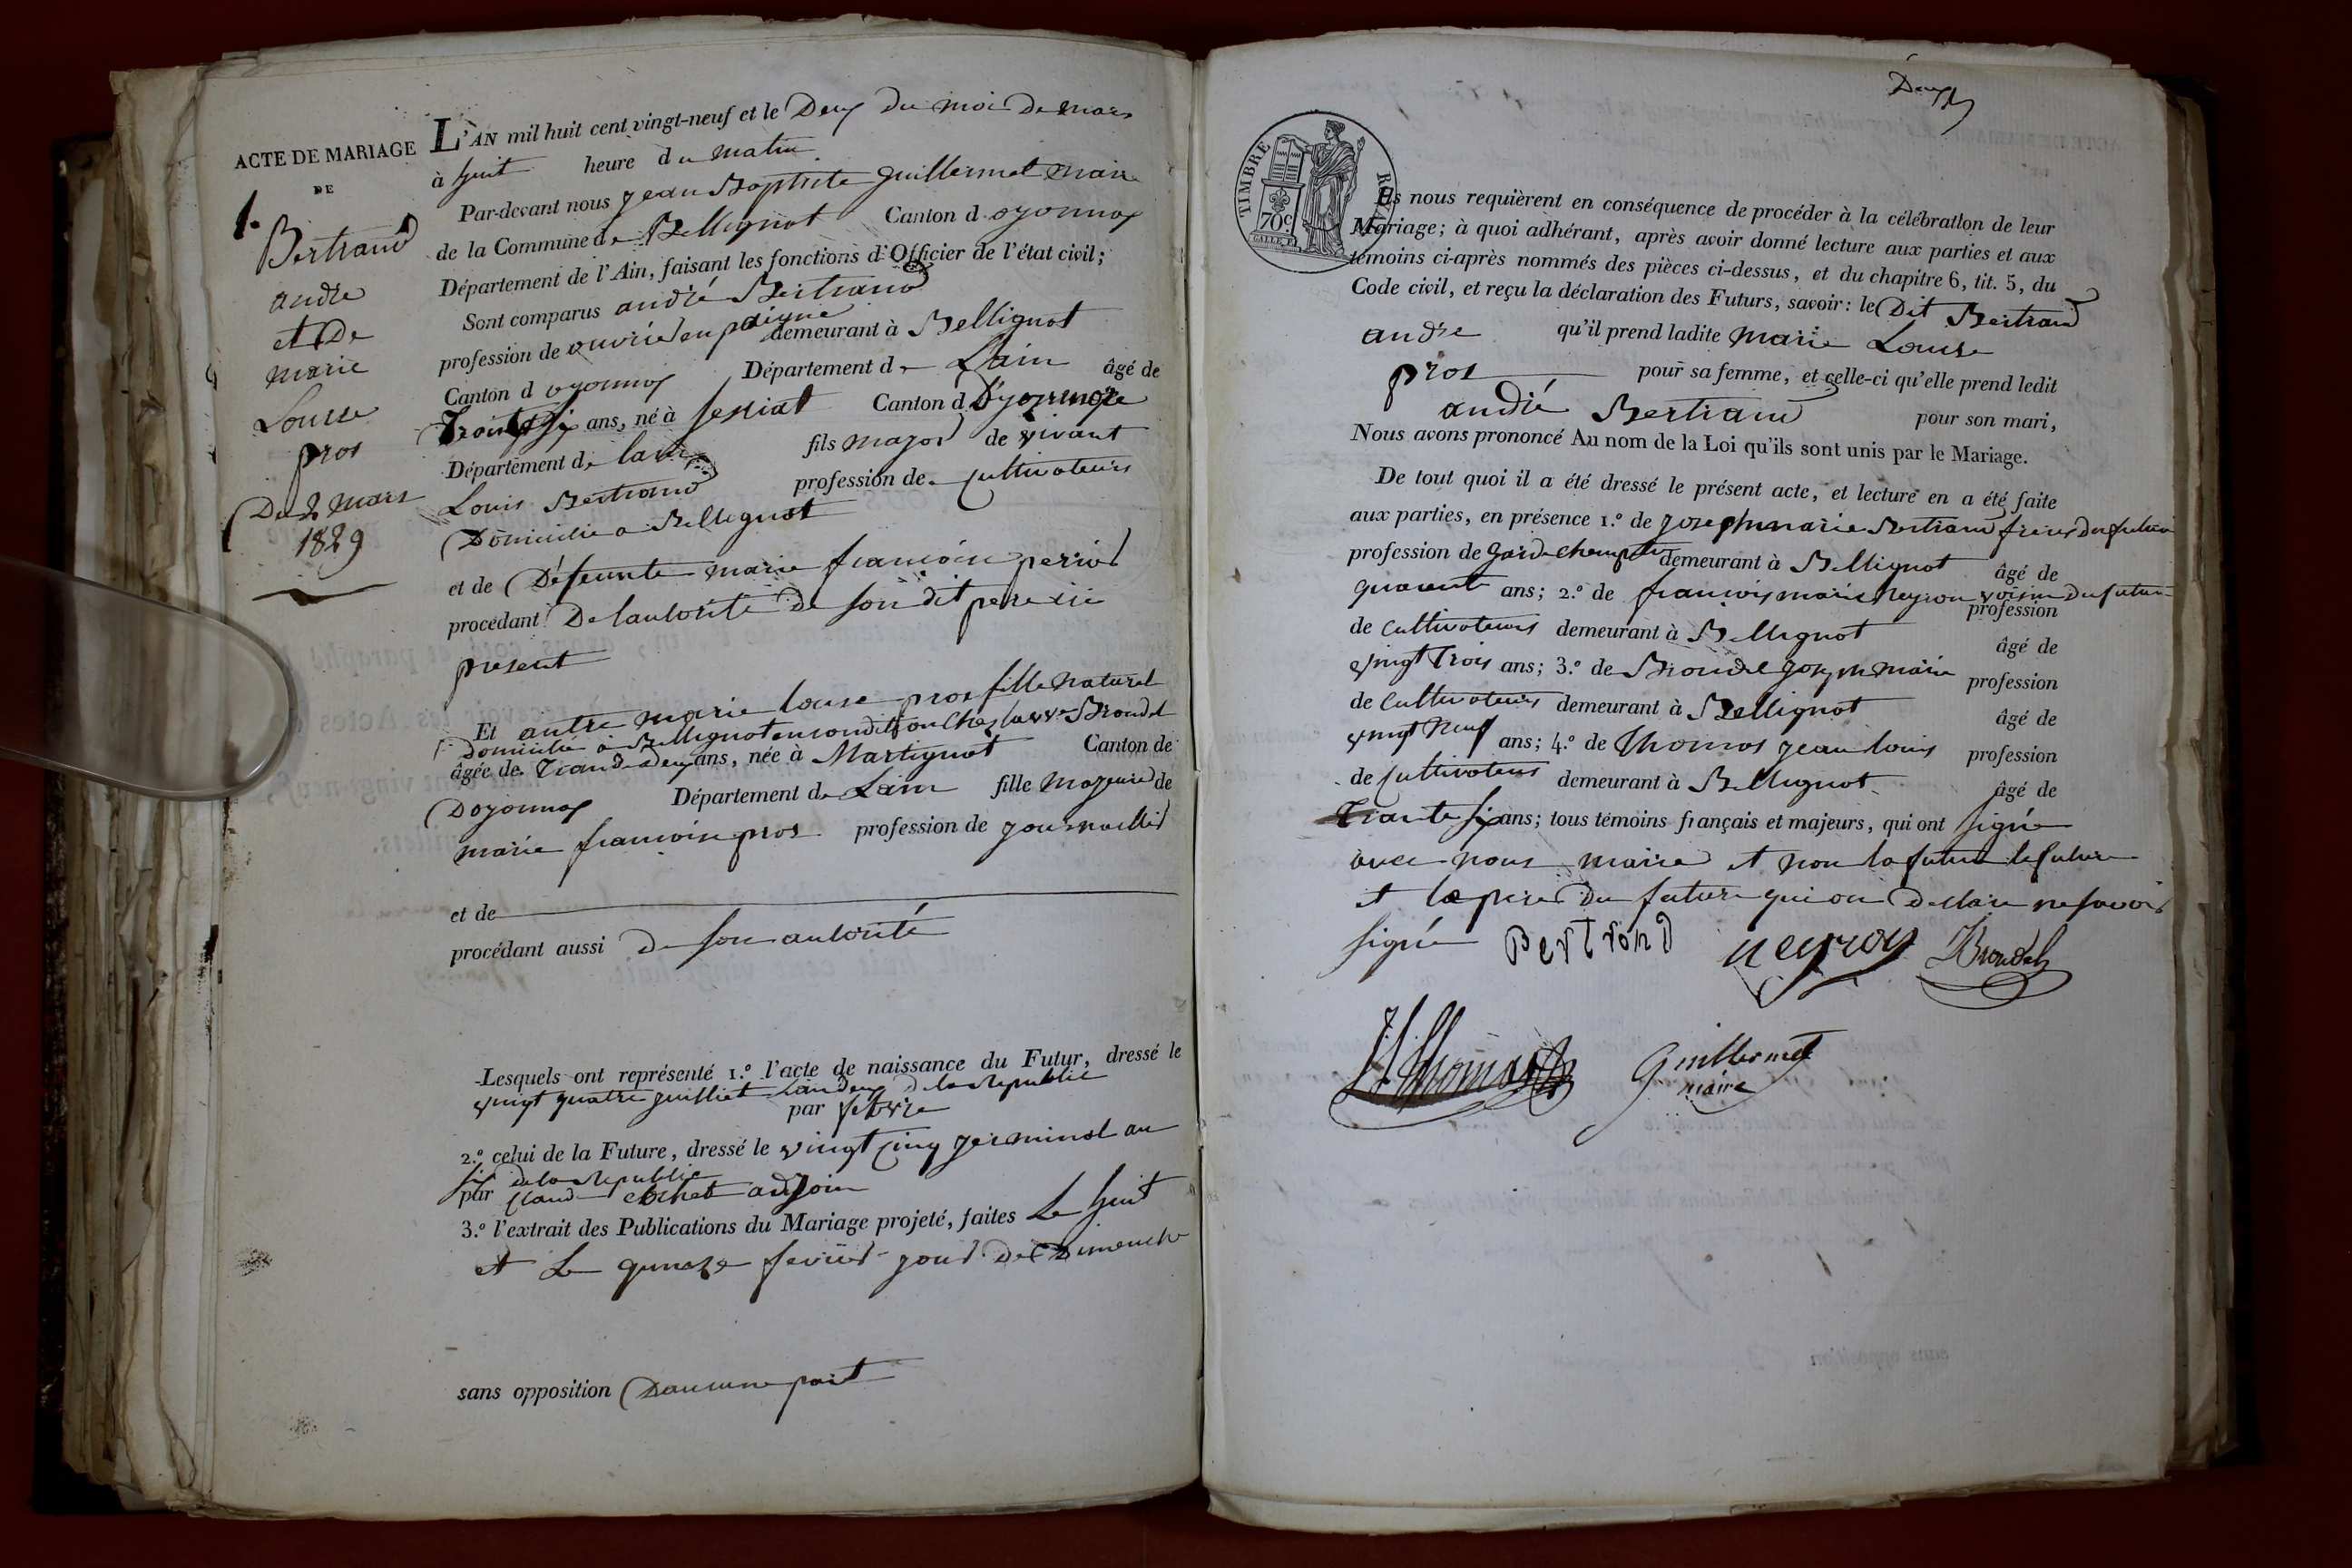 ACTE DE MARIAGE
DE
1.
Bertrand
andre
et De
marie
Louise
pros
Du 2 mars
1829
L'AN mil huit cent vingt-neuf et le Deux du moi de mars
à huit heure du matin
Par-devant nous jean Baptiste guillermet maire
de la Commune de Bellignat Canton d oyonnax
Département de l'Ain, faisant les fonctions d'Officier de l'état civil;
Sont comparus andré Bertrand
profession de ouvrié en peigne demeurant à Bellignat
Canton d oyonnax Département de Lain âgé de
Trente six ans, né à Canton d
Département de lain fils major de vivant
Louis Bertrand profession de cultivateur
Domicilie a Bellignat
et de Défeunte marie francoise perrier
procédant De lautorité de son dit pere ici
present
Et autre marie louise pros fille naturel
Domicilie a Bellignat en condition Chez la vve Brondel
âgée de Trande deux ans, née à Martignat Canton de
Doyonnax Département de Lain fille majeure de
marie francoise pros profession de journallier
et de
procédant aussi de son autorité
Lesquels ont représenté 1.º l'acte de naissance du Futur, dressé le
vingt quatre juilliet Lan deux de la republic
par
2.º celui de la Future, dressé le vingt cinq germinal an
six de la republic
par Claude adjoin
3.º l'extrait des Publications du Mariage projeté, faites Le huit
et Le quinze fevrier jour de Dimenche
sans opposition Daucune part
Deux
TIMBRE
70c.
Ils nous requièrent en conséquence de procéder à la célébration de leur
Mariage; à quoi adhérant, après avoir donné lecture aux parties et aux
témoins ci-après nommés des pièces ci-dessus, et du chapitre 6, tit. 5, du
Code civil, et reçu la déclaration des Futurs, savoir: le Dit Bertrand
andre qu'il prend ladite marie Louise
pros pour sa femme, et celle-ci qu'elle prend ledit
andré Bertrand pour son mari,
Nous avons prononcé Au nom de la Loi qu'ils sont unis par le Mariage.
De tout quoi il a été dressé le présent acte, et lecture en a été faite
aux parties, en présence 1.º de joseph marie Bertrand frère du futur
profession de Garde champetre demeurant à Bellignat âgé de
quarente ans; 2.º de francois marie Neyron voisin du futur profession
de cultivateur demeurant à Bellignat âgé de
vingt Trois ans; 3.º de Brondel joseph marie profession
de cultivateur demeurant à Bellignat âgé de
vingt Neuf ans; 4.º de Thomas jean louis profession
de cultivateur demeurant à Bellignat âgé de
Trante six ans; tous témoins français et majeurs, qui ont signé
avec nous maire et non la future le future
et le pere du future qui on declaire ne savoir
signé Bertrand neyron Brondel
JL Thomas Guillermet
maire